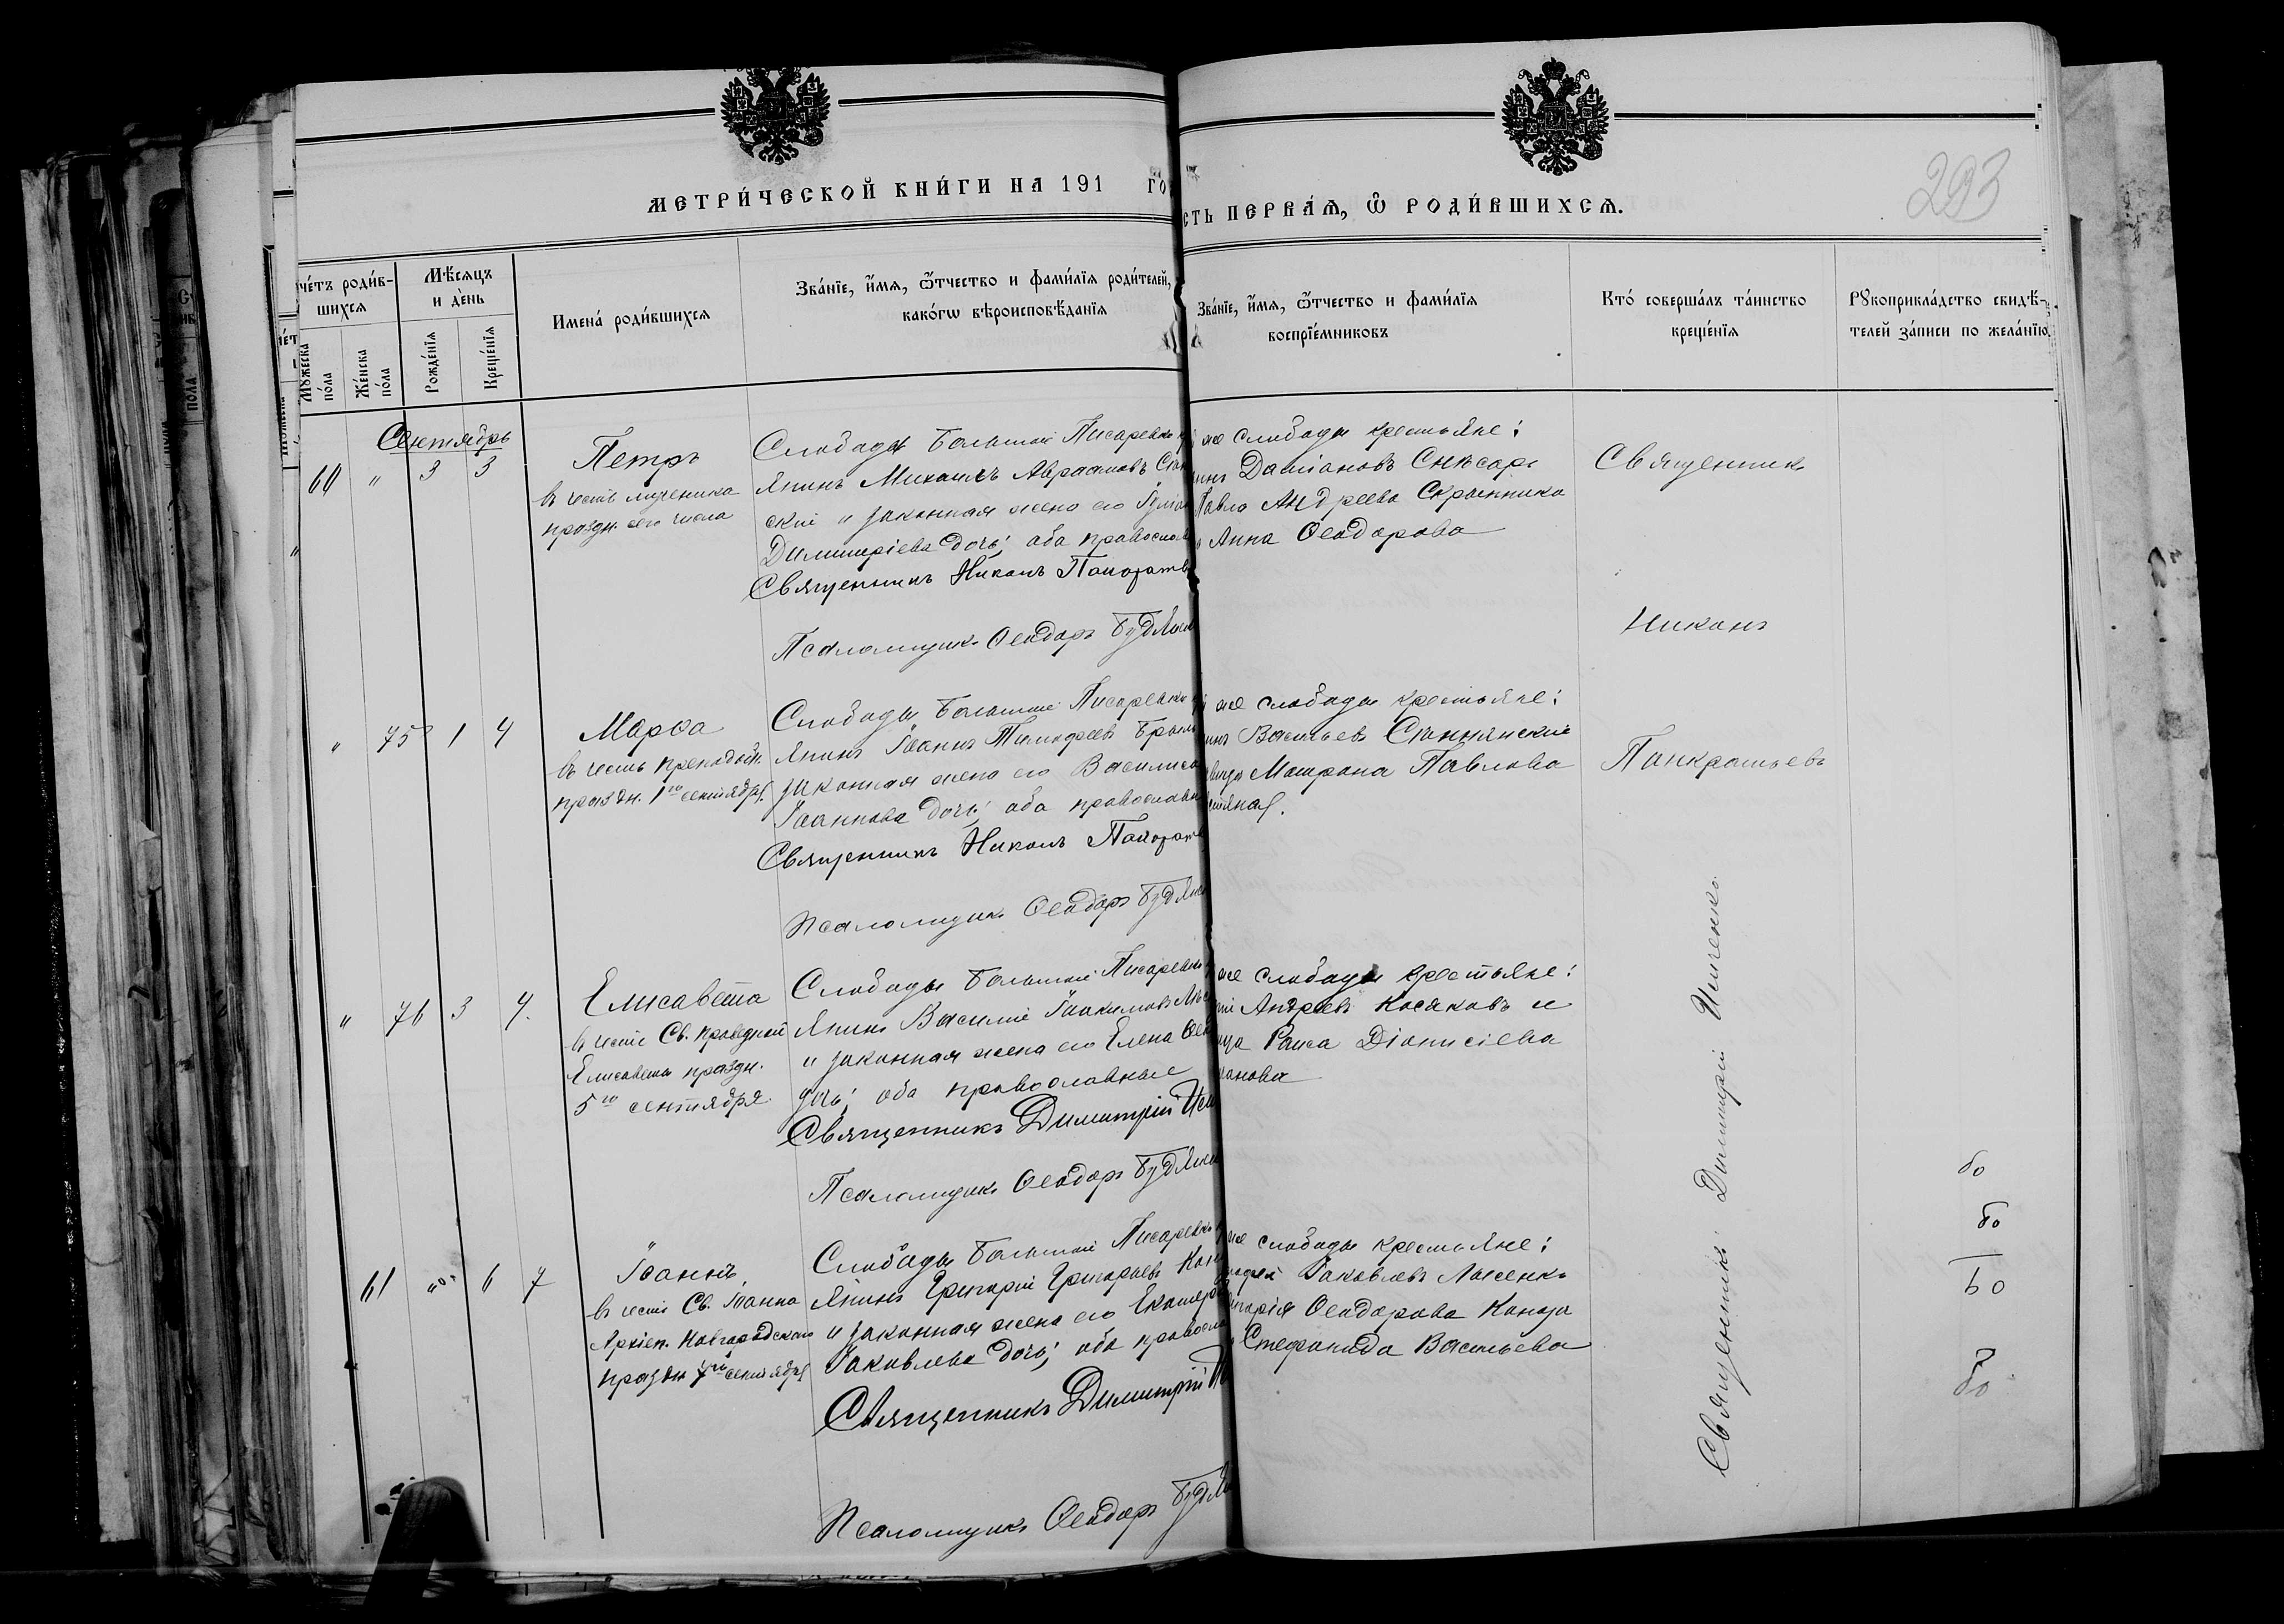 МЕТРИ́ЧЕСКОЙ КНИ́ГИ НА 191 ГО
СТЬ ПЕРВА́Я, Ѡ РОДИ́ВШИХСЯ.
293
че́тъ роди́в-
шихся
Мѣ́сяцъ
и де́нь
Мꙋ́жеска
по́ла
Же́нска
по́ла
Рожде́нїя
Креще́нїя
Имена́ роди́вшихся
Зва́нїе, и́мя, ѻ҆́тчество и фами́лїя роди́телей,
како́гѡ вѣроисповѣ́данїя
Зва́нїе, и́мя, ѻ҆́тчество и фами́лїя
воспрїе́мниковъ
Кто́ соверша́лъ та́инство
креще́нїя
Рꙋкоприкла́дство свидѣ́-
телей за́писи по жела́нїю
Сентябрь
60 " 3 3
Петръ
въ честь мученика
праздн. сего числа
Слободы Большой Писаревки
янинъ Михаилъ Авраамовъ
ский и законная жена его
Димитріева дочь; оба православ
Священникъ Никонъ
Псаломщикъ Ѳеодоръ Будян
же слободы крестьяне:
Даміановъ Снѣсарь
Павла Андреева Скрынника
Анна Ѳеодорова
Священникъ
Никонъ
Панкратьевъ
" 75 1 4
Марѳа
въ честь преподобн.
праздн. 1го сентября.
Слободы Большой Писаревки
янинъ Іоаннъ Тимоѳеевъ
законная жена его Василиса
Іоаннова дочь; оба православн
Священникъ Никонъ
Псаломщикъ Ѳеодоръ Будян
же слободы крестьяне:
инъ Васильевъ
вица Матрона Павлова
" 76 3 4.
Елисавета
въ честь Св. праведной
Елисаветы праздн.
5го сентября.
Слободы Большой Писаревки
янинъ Василій Іоакимовъ
и законная жена его Елена
дочь; оба православные
Священникъ Димитрій
Псаломщикъ Ѳеодоръ Будян
же слободы крестьяне:
Андреевъ Косяковъ и
ица Раиса Діонисіева
анова
61 " 6 7
Іоаннъ,
въ честь Св. Іоанна
Архіеп. Новгородскаго
праздн. 7го сентября
Слободы Большой Писаревки
янинъ Григорій Григорьевъ
и законная жена его Екатер
Іаковлева дочь; оба правосла
Священникъ Димитрій
Псаломщикъ Ѳеодоръ
же слободы крестьяне:
Іаковлевъ Лысенко
Григорія Ѳеодорова
Стефанида Васильева
Священникъ Димитрій Ищенко.